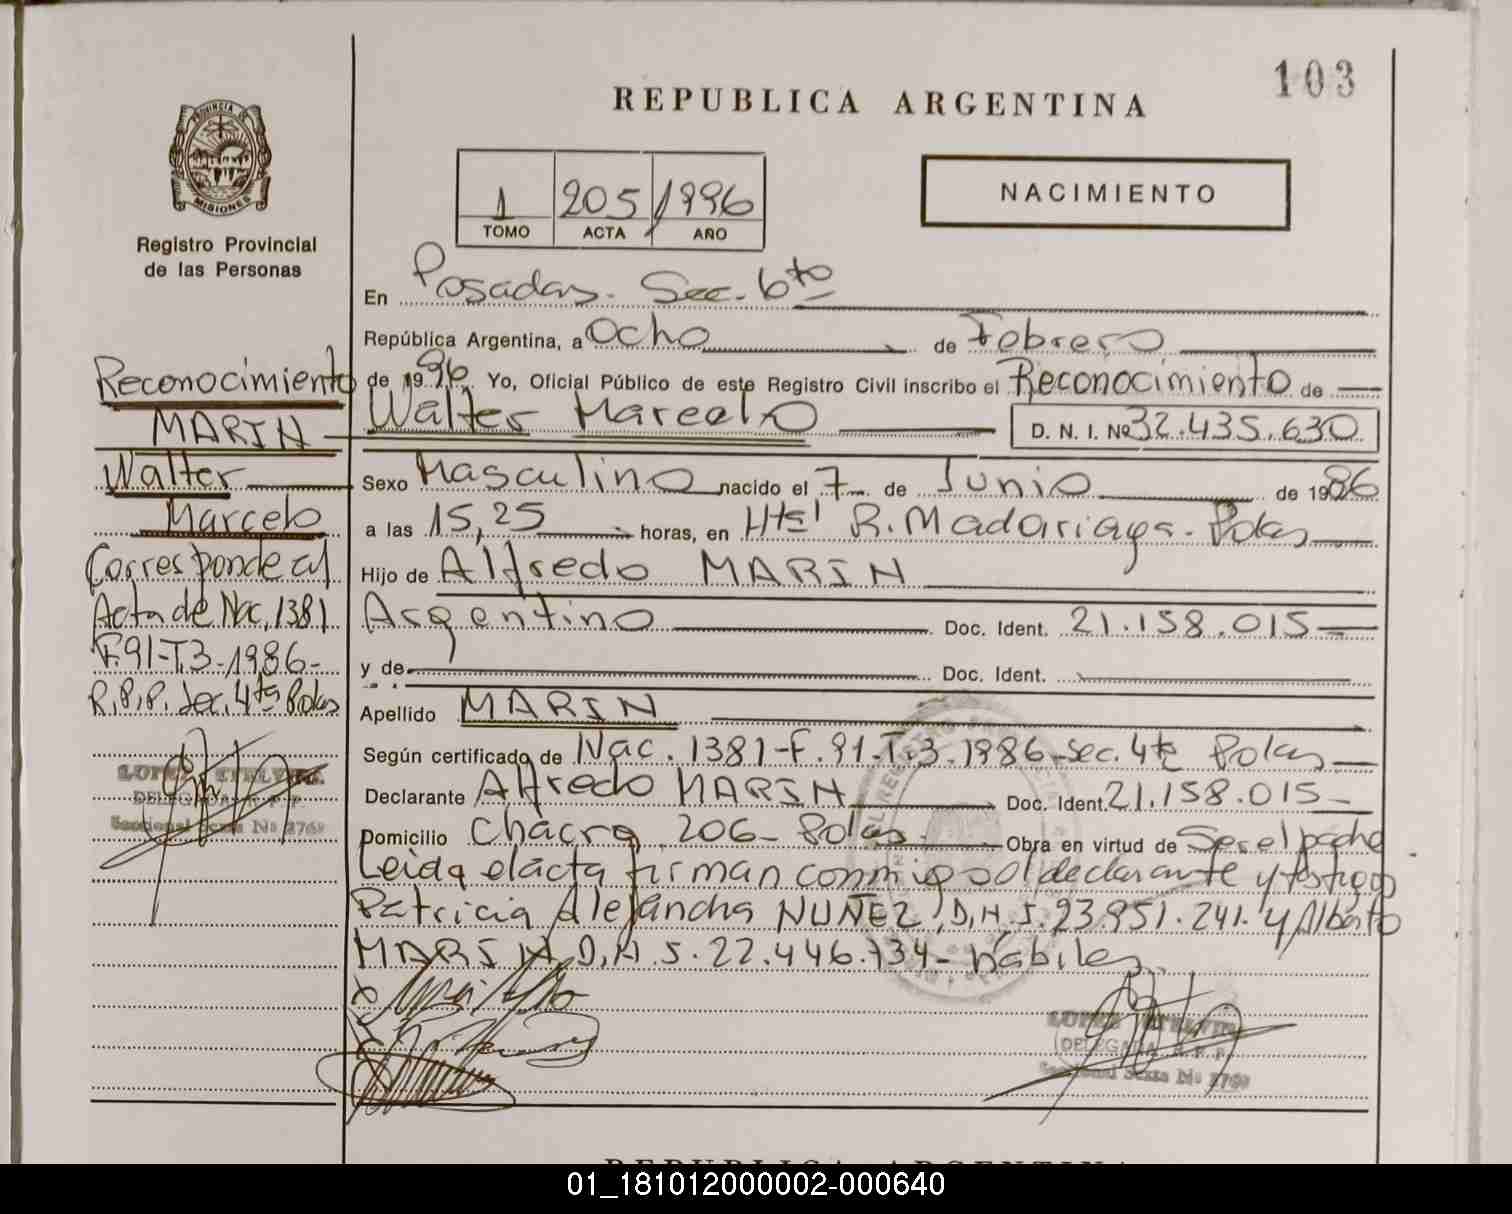 103
REPUBLICA ARGENTINA
PROVINCIA DE
MISIONES
Registro Provincial
de las Personas
1 205 1996
TOMO ACTA AÑO
NACIMIENTO
En Posadas. Sec. 6to
República Argentina, a Ocho de Febrero
de 1996 Yo, Oficial Público de este Registro Civil inscribo el Reconocimiento de
Walter Marcelo D. N. I. Nº 32.435.630
Sexo Masculino nacido el 7 de Junio de 1986
a las 15,25 horas, en Htal R. Madariaga - Pdas
Hijo de Alfredo MARIN
Argentino Doc. Ident. 21.158.015
y de Doc. Ident.
Apellido MARIN
Según certificado de Nac. 1381-F.91-T.3.1986-Sec. 4ta Pdas
Declarante Alfredo MARIN Doc. Ident. 21.158.015
Domicilio Chacra 206- Pdas. Obra en virtud de Ser el padre
Leida el acta firman conmigo el declarante y testigos
Patricia Alejandra NUÑEZ, D.N.I. 23.951.241. y Alberto
MARIN, D.N.I. 22.446.734- hábiles
LOPEZ ETELVINA
DELEGADA R. P. P.
Seccional Sexta Nº 2769
Reconocimiento
MARIN
Walter
Marcelo
Corresponde al
Acta de Nac. 1381
F.91-T.3-1986-
R.P.P. Sec. 4ta Pdas
LOPEZ ETELVINA
DELEGADA R. P. P.
Seccional Sexta Nº 2769
REPUBLICA ARGENTINA
01_181012000002-000640